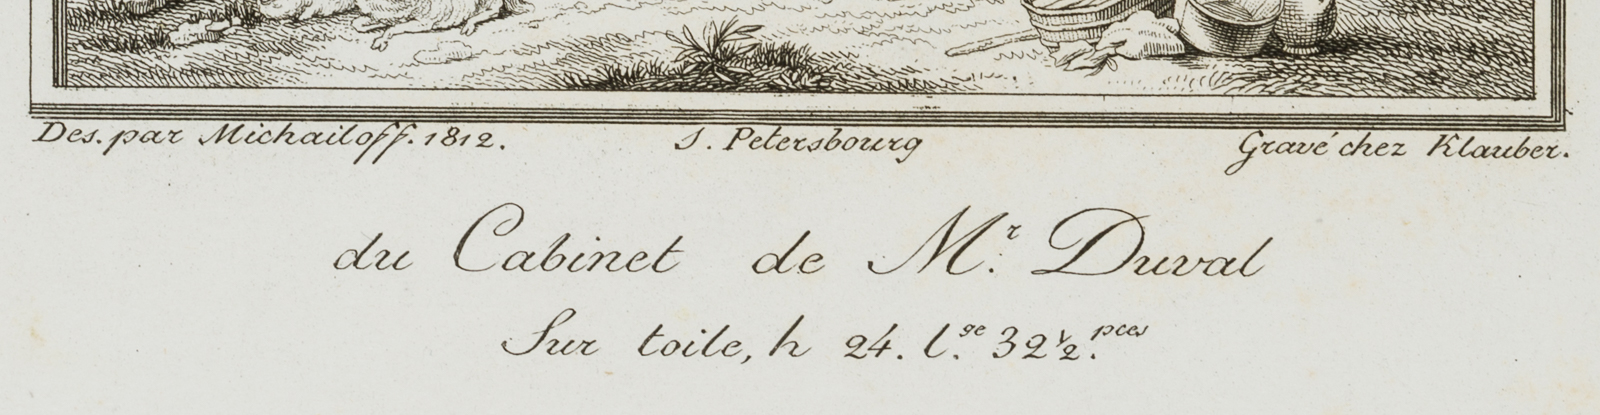 Des. par Michailoff. 1812. S. Petersbourg Gravé chez Klauber.
du Cabinet de Mr. Duval
Sur toile, h 24. l.ge 32½.pces